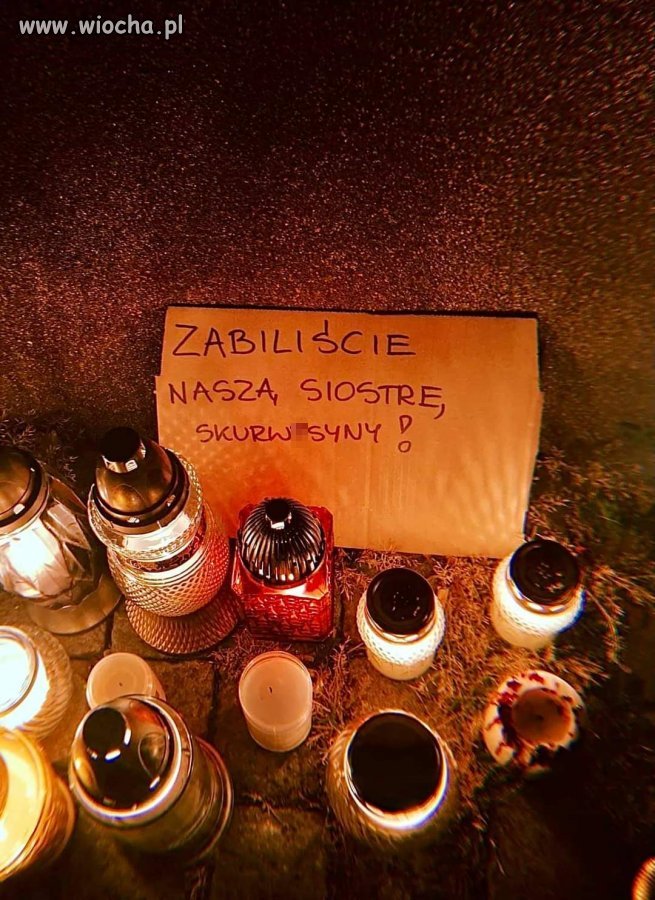 www.wiocha.pl
ZABILIŚCIE
NASZĄ SIOSTRĘ,
SKURW SYNY!